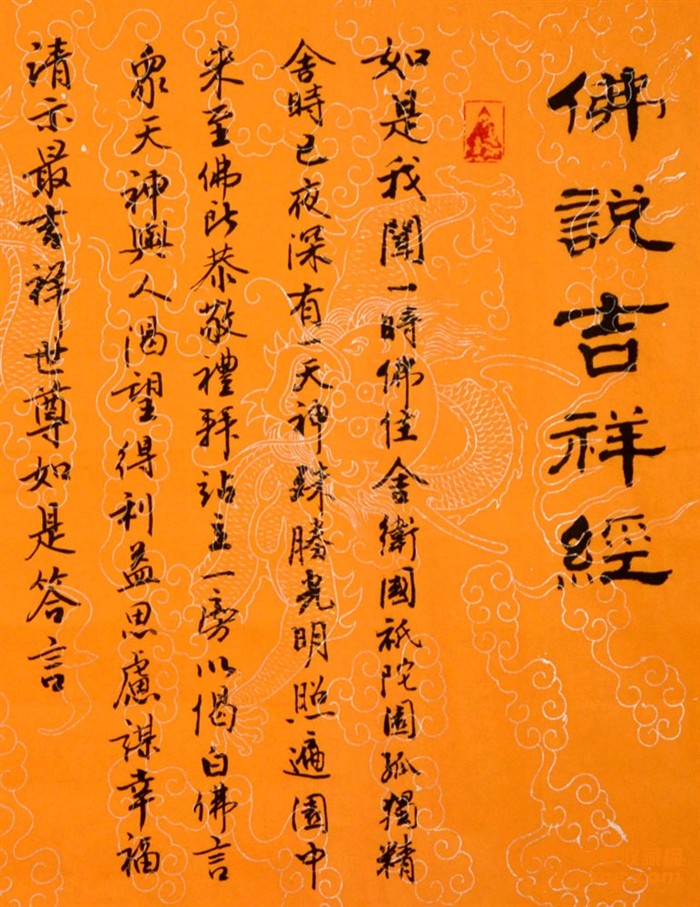 佛說吉祥經
如是我聞一時佛住舍衛國祇陀園孤獨精
舍時已夜深有一天神殊勝光明照遍園中
來至佛所恭敬禮拜站立一旁以偈白佛言
眾天神與人渴望得利益思慮謀幸福
請示最吉祥世尊如是答言